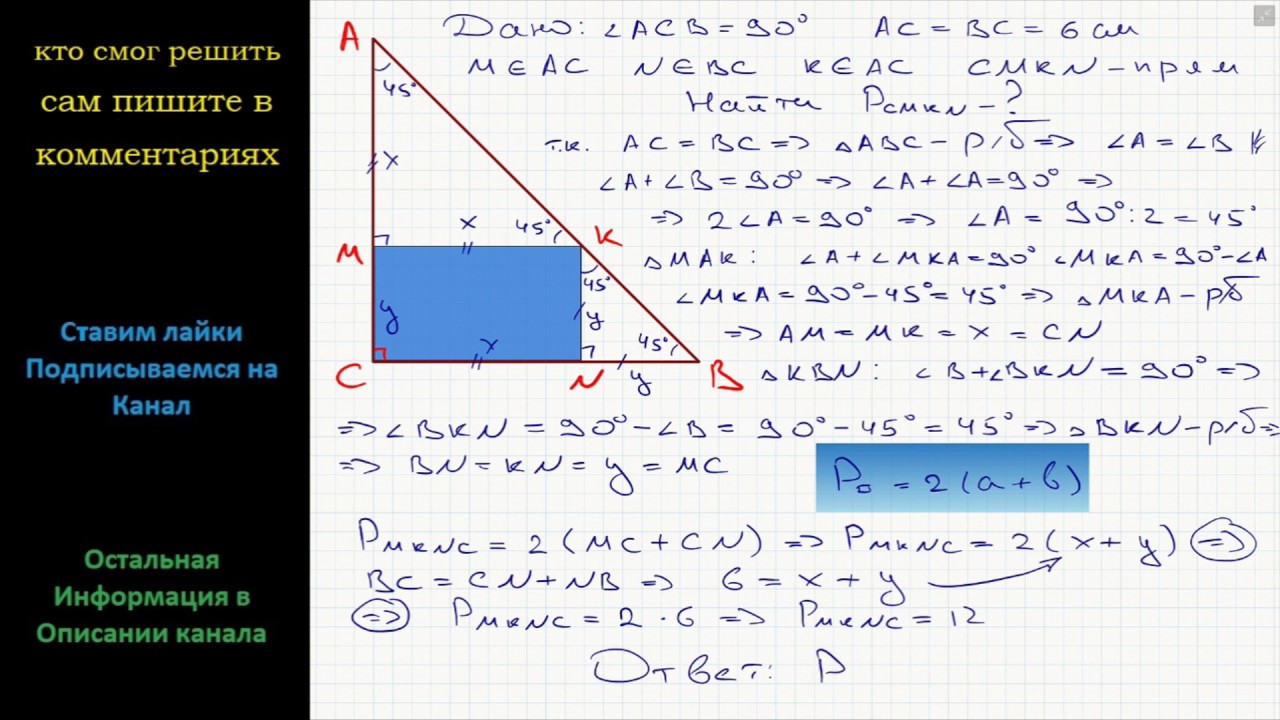 кто смог решить
сам пишите в
комментариях
Ставим лайки
Подписываемся на
Канал
Остальная
Информация в
Описании канала
Дано: ∠ACB = 90° AC = BC = 6 см
M ∈ AC N ∈ BC K ∈ AC CMKN – прям
Найти PCMKN – ?
т.к. AC = BC => △ABC – р/б => ∠A = ∠B
∠A + ∠B = 90° => ∠A + ∠A = 90° =>
=> 2∠A = 90° => ∠A = 90° : 2 = 45°
△MAK: ∠A + ∠MKA = 90° ∠MKA = 90° - ∠A
∠MKA = 90° - 45° = 45° => △MKA – р/б
=> AM = MK = x = CN
△KBN: ∠B + ∠BKN = 90° =>
=> ∠BKN = 90° - ∠B = 90° - 45° = 45° => △BKN – р/б =>
=> BN = KN = y = MC
P▫ = 2(a + b)
PMKNC = 2(MC + CN) => PMKNC = 2(x + y) =>
BC = CN + NB => 6 = x + y
=> PMKNC = 2 · 6 => PMKNC = 12
Ответ: P
A
45°
x
x
45°
K
M
45°
y
y
x
45°
C
N
y
B